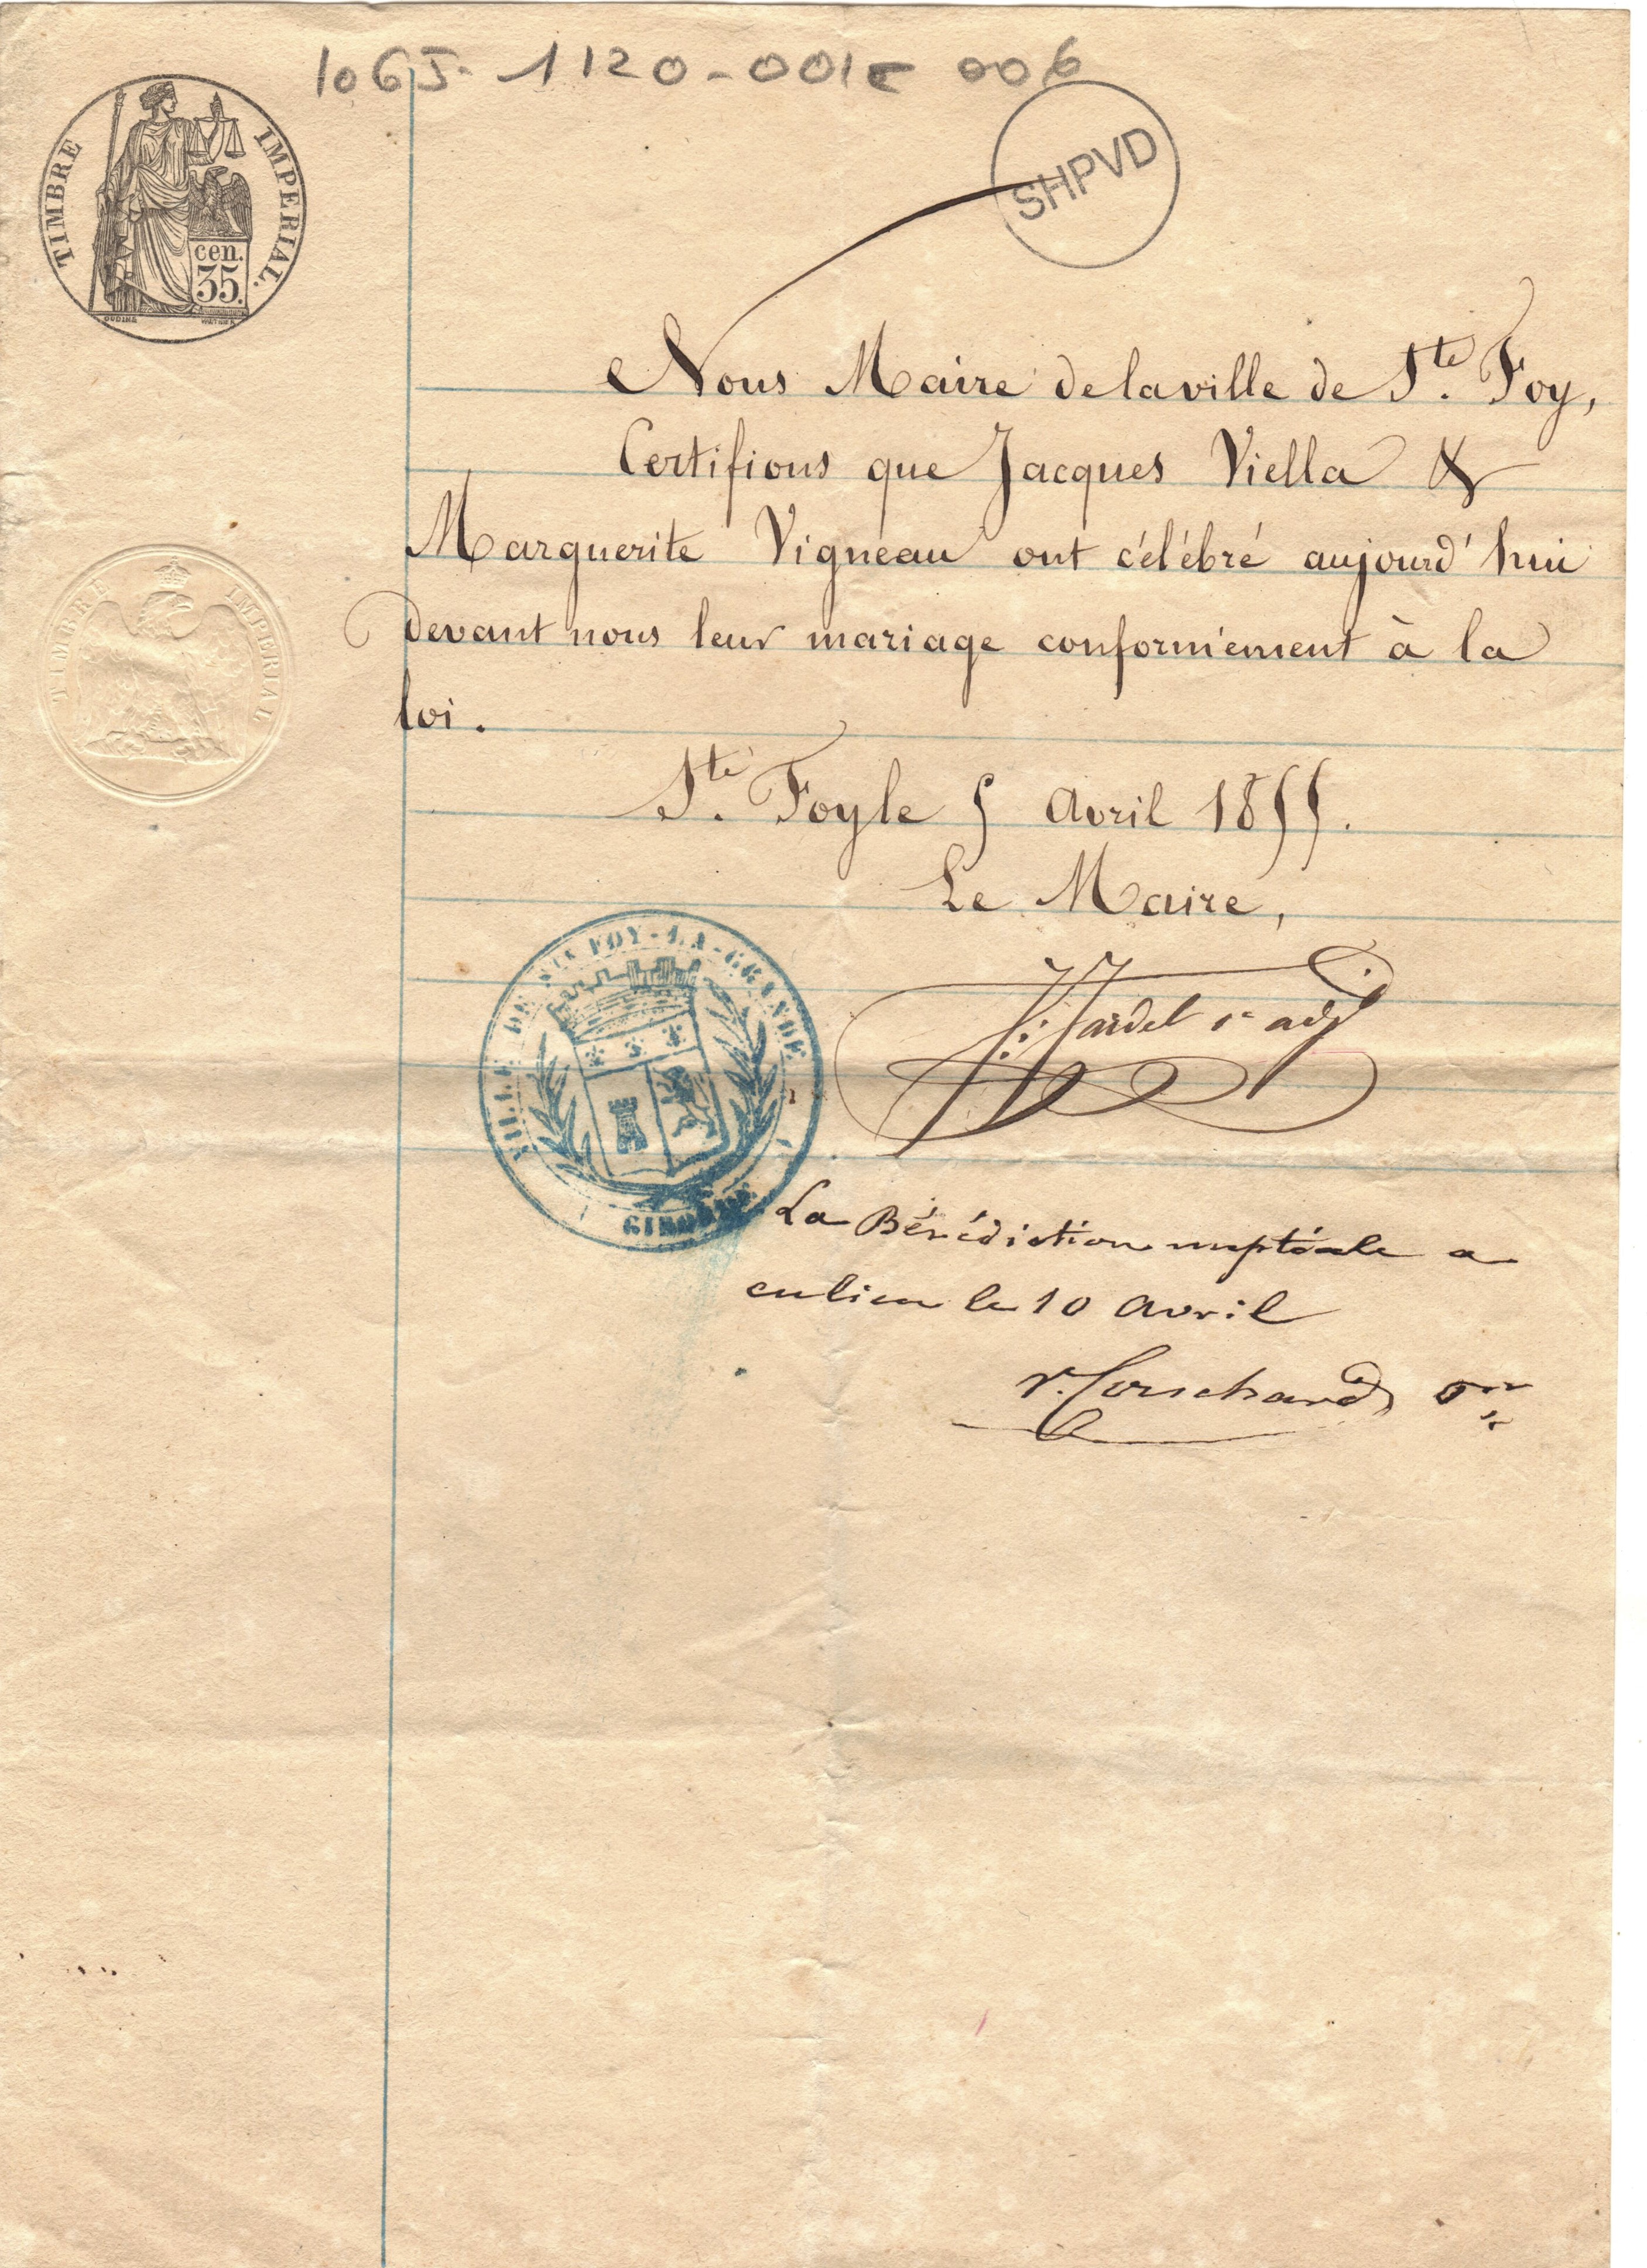 106J-1120-001 006
TIMBRE IMPERIAL.
cen.
35.
SHPVD
Nous Maire de la ville de Ste. Foy,
Certifions que Jacques Viella &
Marguerite Vigneau ont célébré aujourd'hui
devant nous leur mariage conformément à la
loi.
Ste. Foy le 5 Avril 1855.
Le Maire,
Jardel 1er adj
VILLE DE STE FOY-LA-GRANDE
GIRONDE
TIMBRE IMPERIAL
La Bénédiction nuptiale a
eu lieu le 10 Avril